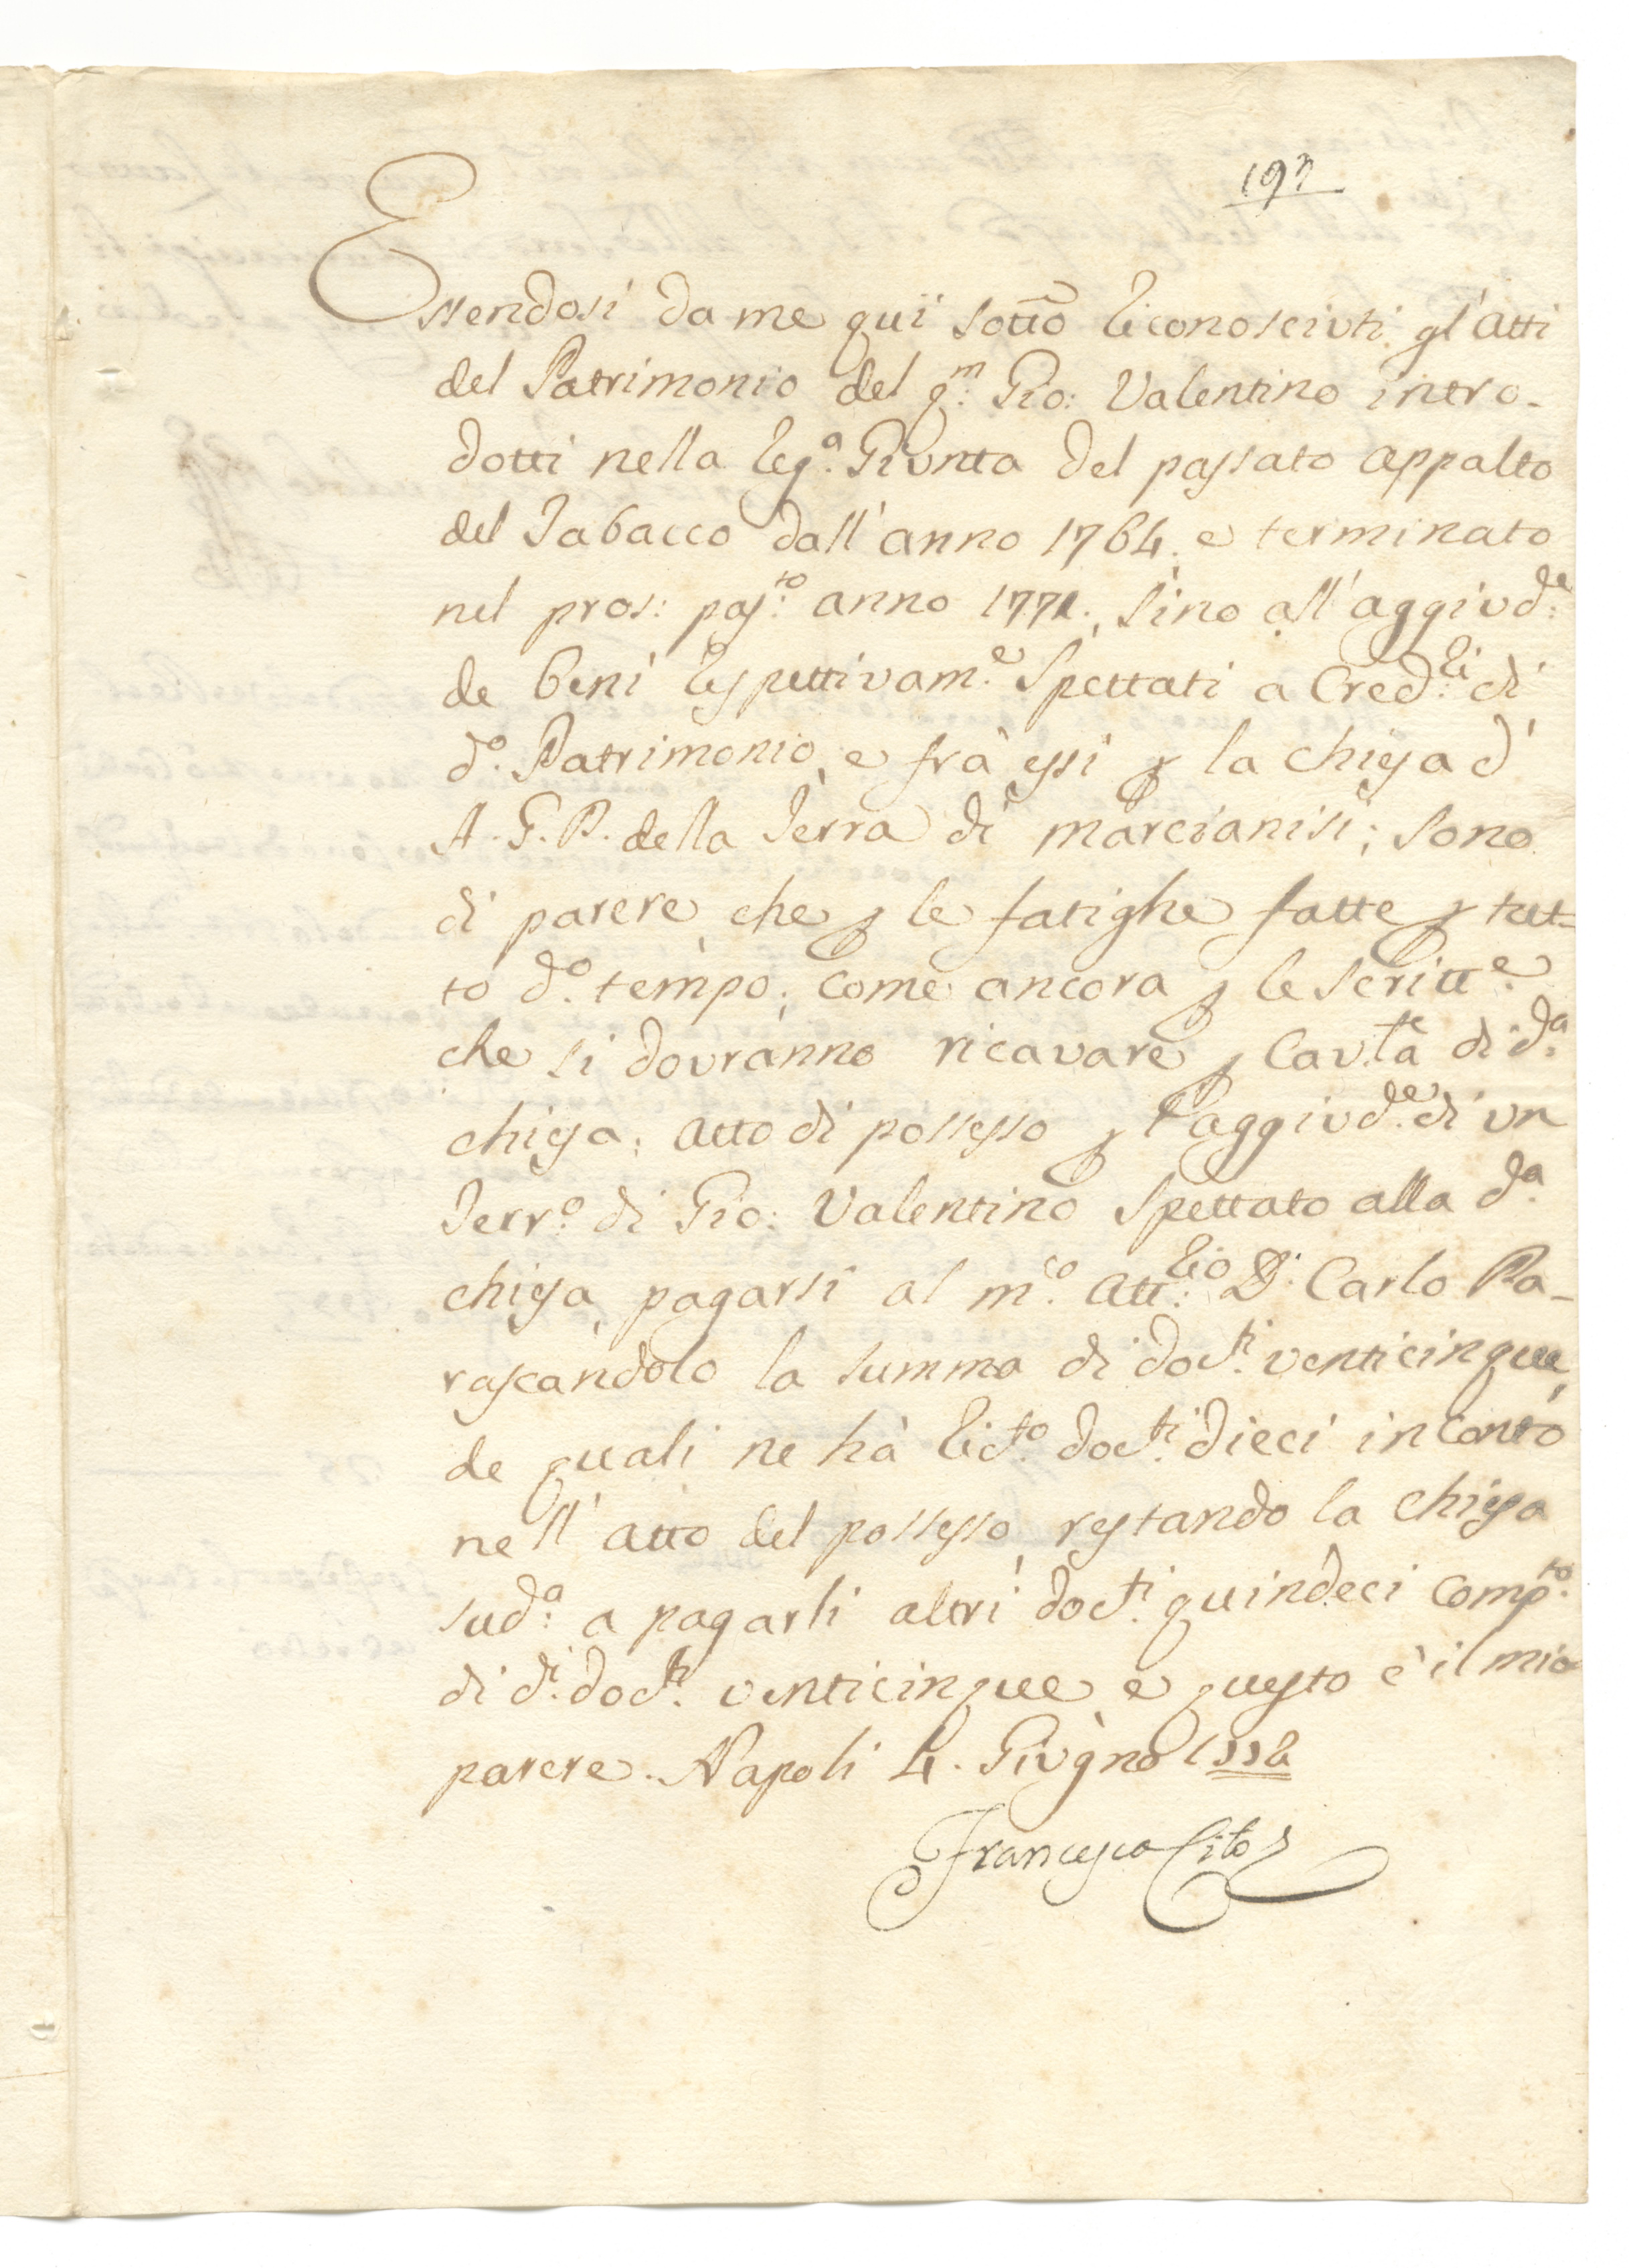 197
Essendosi da me quì sotto riconosciuti gl'atti
del Patrimonio del q.m Gio: Valentino intro-
dotti nella Reg.a Giunta del passato appalto
del Tabacco dall'anno 1764. e terminato
nel pros: pas.to anno 1771. sino all'aggiud.e
de beni respettivam.e spettati a Cred.ri di
d.o Patrimonio, e frà essi p la Chiesa d'
A. G. P. della Terra di Marcianisi; sono
di parere che p le fatighe fatte p tut-
to d.o tempo; come ancora p le scritt.e
che si dovranno ricavare p Caut.la di d.a
Chiesa; atto di possesso p l'aggiud.e di un
Terr.o di Gio: Valentino spettato alla d.a
Chiesa, pagarsi al m.co Att.rio D. Carlo Pa-
rascandolo la summa di doc.ti venticinque,
de quali ne hà ric.to doc.ti dieci in conto
nell'atto del possesso, restando la Chiesa
sud.a a pagarli altri doc.ti quindeci comp.to
di d.i doc.ti venticinque e questo è il mio
parere. Napoli 4. Giugno 1772
Francesco Cito